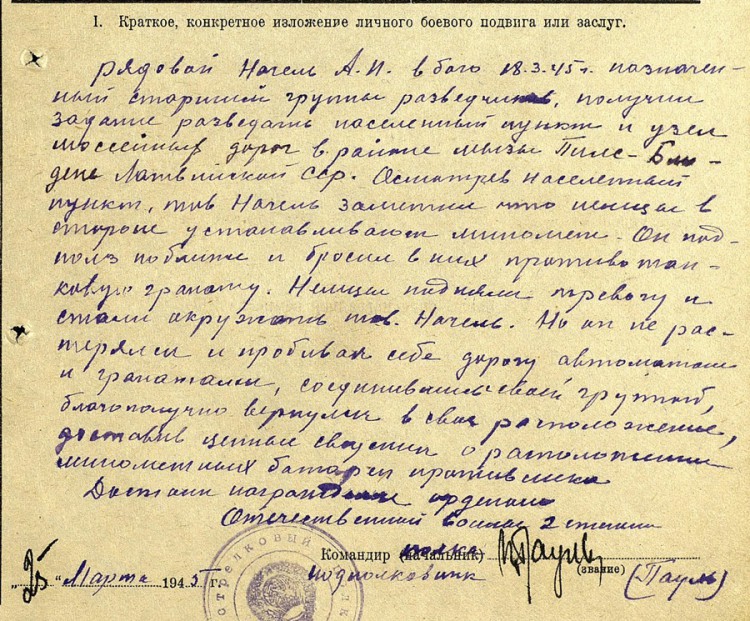 I. Краткое, конкретное изложение личного боевого подвига или заслуг.
рядовой Нагель А.И. в бою 18.3.45 г. назначен-
ный старшим группы разведчиков, получил
задание разведать населенный пункт и узел
шоссейных дорог в районе мызы Пилс-Бли-
дене Латвийской ССР. Осмотрев населенный
пункт, тов Нагель заметил что немцы в
стороне устанавливают миномет. Он под-
полз поближе и бросил в них противотан-
ковую гранату. Немцы подняли тревогу и
стали окружать тов. Нагель. Но он не рас-
терялся и пробивая себе дорогу автоматом
и гранатами, соединившись своей группой,
благополучно вернулся в свое расположение,
доставив ценные сведения о расположении
минометных батарей противника
Достоин награждения орденом
Отечественной войны 2 степени
Командир (начальник) полка
подполковник
(звание)
(Пауль)
„25" Марта 1945 г.
СТРЕЛКОВЫЙ